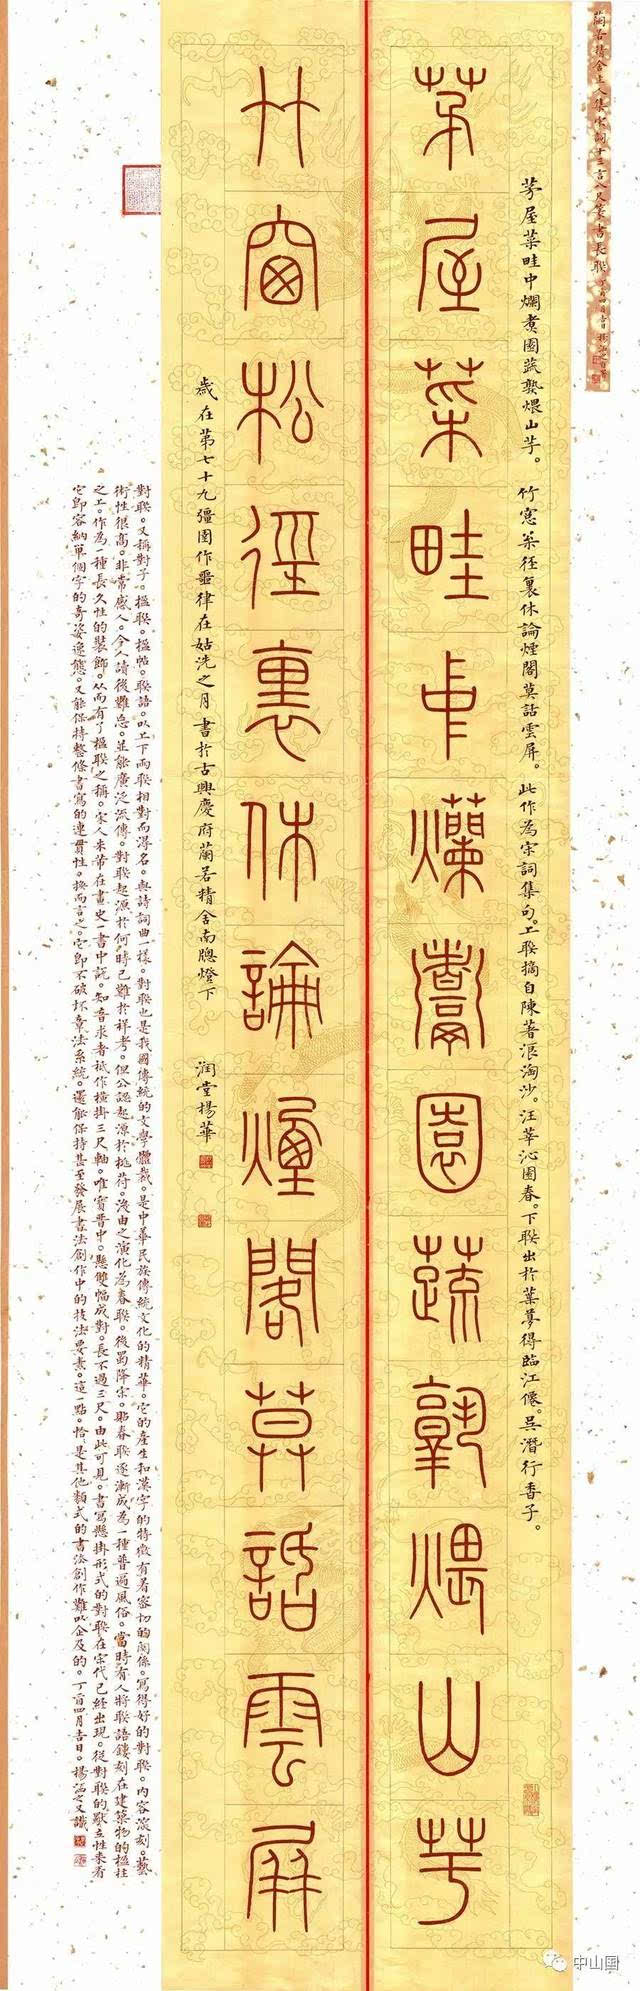 蘭若精舍主人集宋詞十三言八尺篆書長聯
茅屋菜畦中爛煑園蔬熟煨山芋。竹窻松径裏休論煙閣莫話雲屏。此作為宋詞集句。上聯摘自陳著浪淘沙。汪莘沁園春。下聯出於葉夢得臨江僊。吳潛行香子。
茅屋菜畦中爛煑園蔬熟煨山芋
竹窗松徑裏休論煙閣莫話雲屏
歲在第七十九彊圉作噩律在姑洗之月書於古興慶府蘭若精舍南牕燈下 润堂楊華
對聯。又稱對子。楹聯。楹帖。聯語。以上下兩聯相對而得名。與詩詞曲一樣。對聯也是我國傳統的文學體裁。是中華民族傳統文化的精華。它的產生和漢字的特徵有着密切的関係。寫得好的對聯。內容深刻。藝
術性很高。非常感人。令人讀後難忘。並能廣泛流傳。對聯起源於何時已難於祥考。但公認起源於桃符。後由之演化為春聯。後蜀降宋。那春聯逐漸成為一種普遍風俗。當時有人將聯語鏤刻在建築物的楹柱
之上。作為一種長久性的裝飾。从而有了楹聯之稱。宋人米芾在畫史一書中説。知音求者衹作橫掛三尺軸。唯寶晋中。懸雙幅成對。長不過三尺。由此可見。書寫懸掛形式的對聯在宋代已經出現。從對聯的獻立性来看
它即容納單個字的奇姿逸態。又能保持整條書寫的連貫性。換而言之。它即不破坏章法系統。還能保持甚至發展書法創作中的技法要素。這一點。恰是其他類式的書法創作難以企及的。丁酉四月吉日。楊
又識
中山国